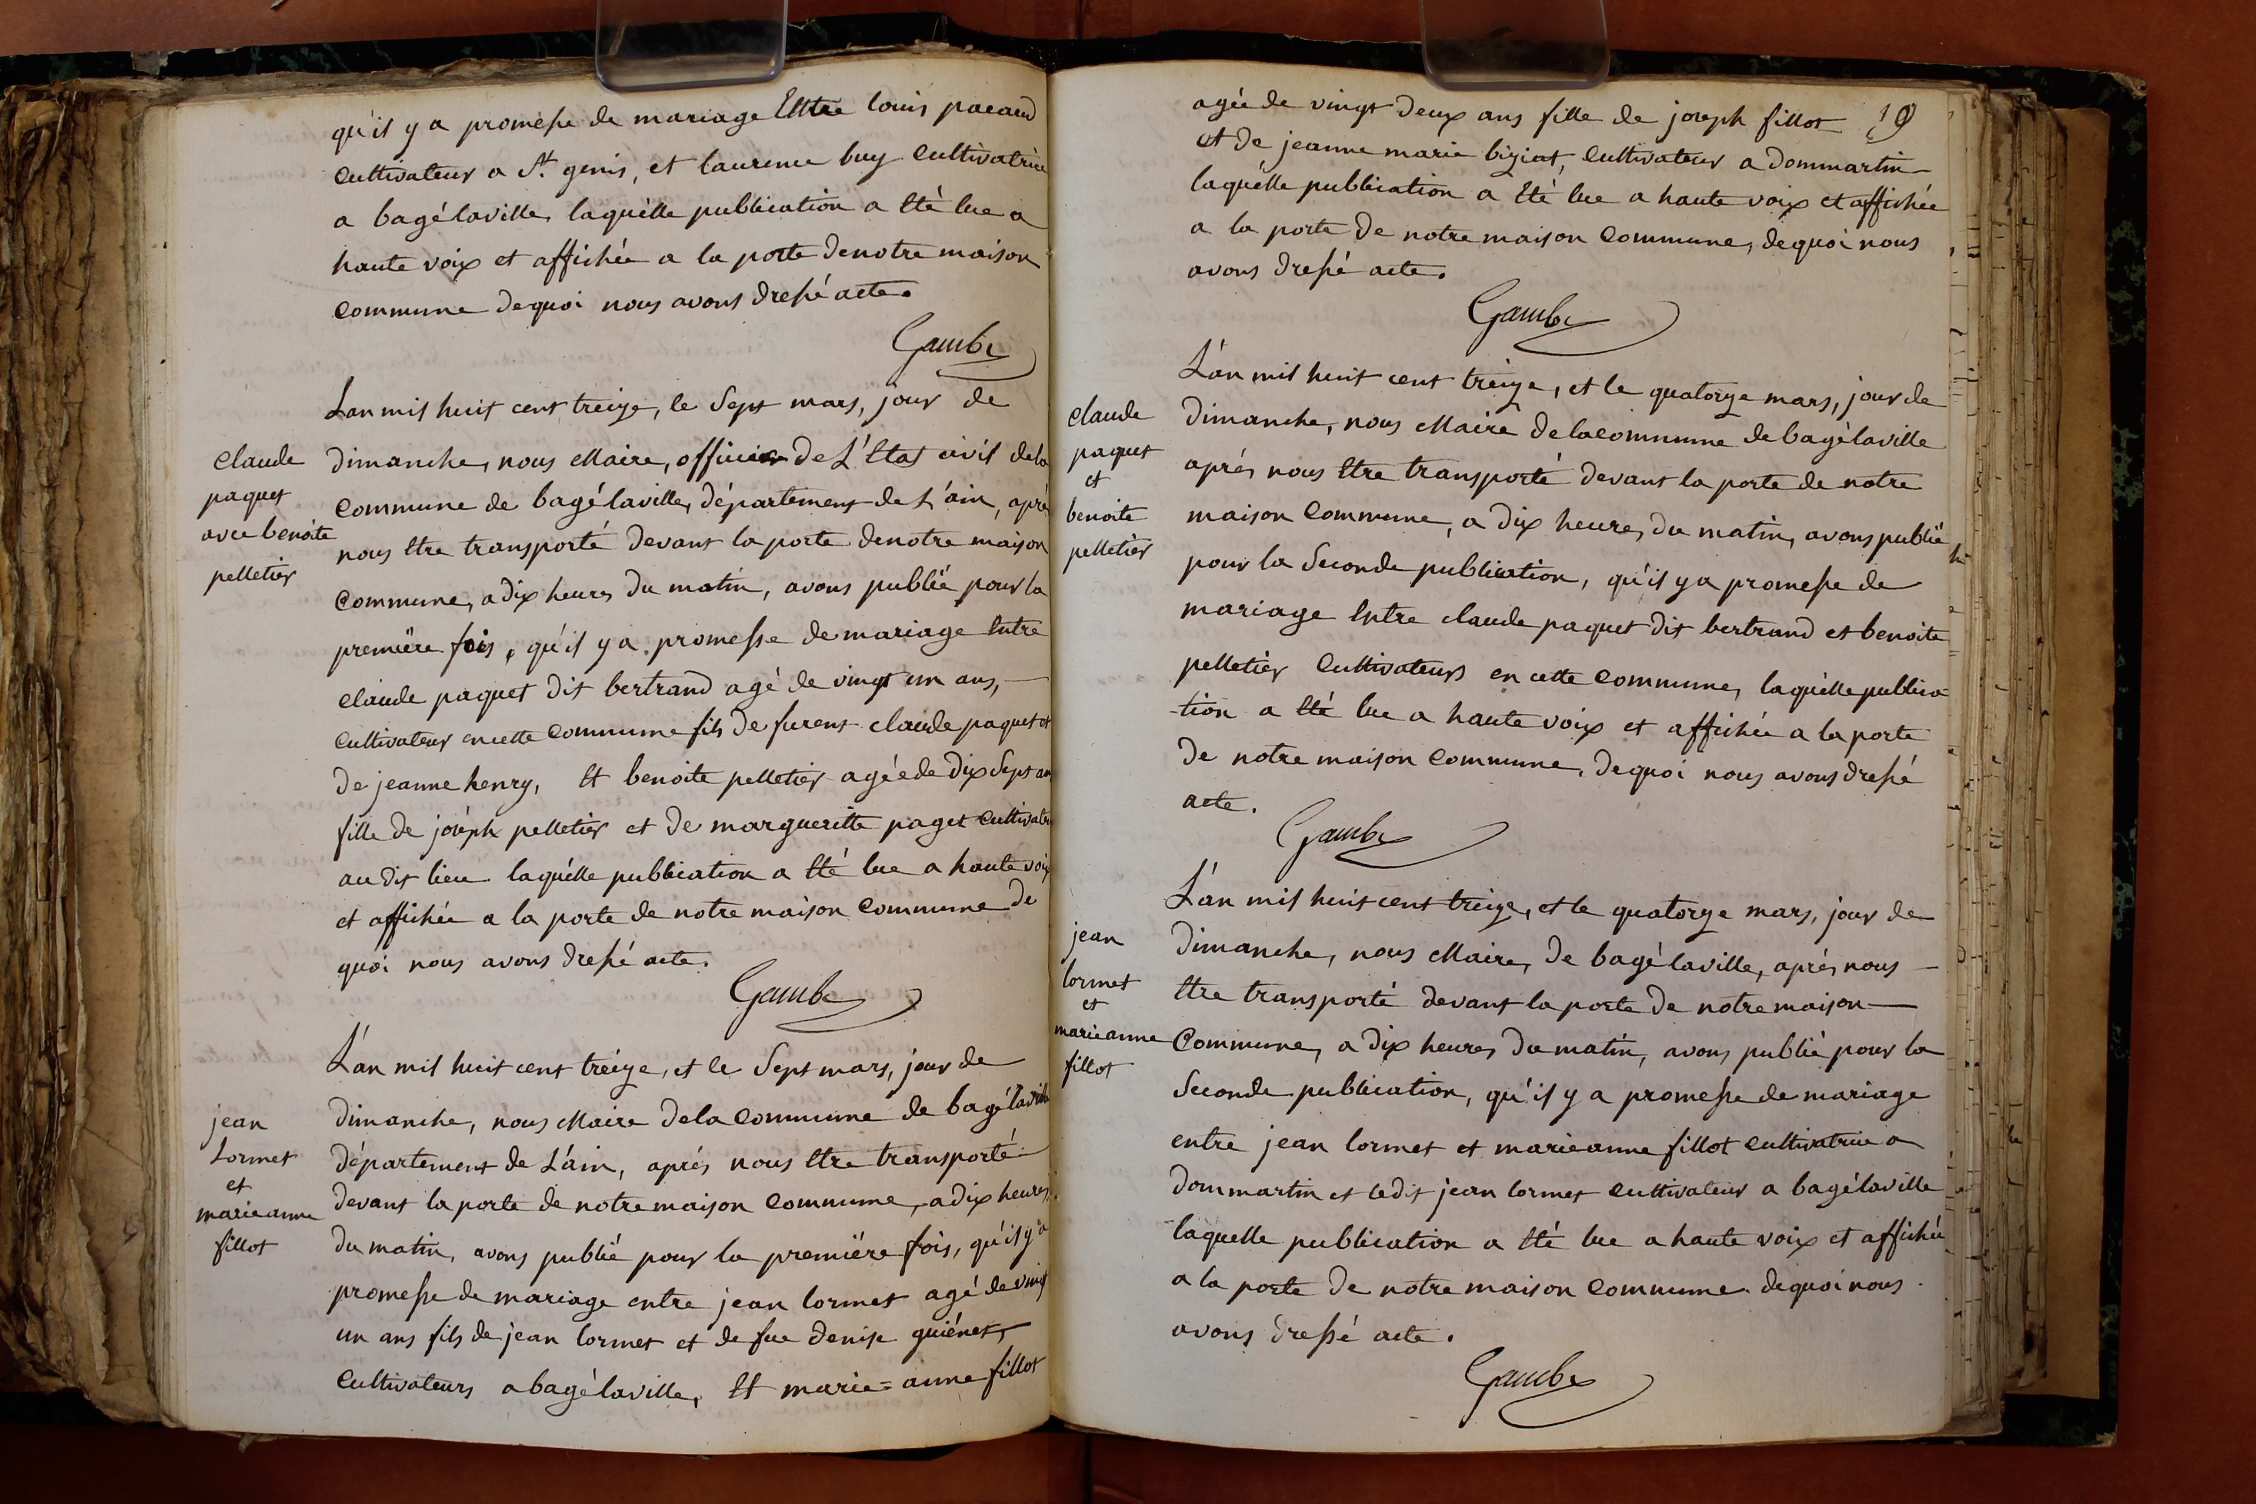 qu'il y a promesse de mariage Entre louis pacaud
Cultivateur a St. genis, et laurence buy Cultivatrice
a bagélaville, laquélle publication a Eté lue a
haute voix et affichée a la porte denotre maison
Commune dequoi nous avons dressé acte.
Gambe
Lan mil huit cent treize, le Sept mars, jour de
claude
paquet
avec benoite
pelletier
dimanche, nous Maire, officier de L'Etat civil dela
Commune de bagélaville, département de L'ain, après
nous Etre transporté devant la porte denotre maison
Commune, a dix heures du matin, avons publié pour la
premiére fois, qu'il y a promesse de mariage Entre
claude paquet dit bertrand agé de vingt un ans,
Cultivateur encette Commune fils de furent claude paquet et
de jeanne henry, Et benoite pelletier agée de dix Sept ans
fille de joséph pelletier et de margueritte paget Cultivateurs
au dit lieu laquélle publication a Eté lue a haute voix
et affichée a la porte de notre maison Commune de
quoi nous avons dressé acte.
Gambe
L'an mil huit cent tréize, et le Sept mars, jour de
jean
Lormet
et
marieanne
fillot
dimanche, nous Maire dela Commune de bagélaville
département de L'ain, aprés nous Etre transporté
devant la porte de notre maison Commune, a dix heures
du matin, avons publié pour la premiére fois, qu'il y a
promesse de mariage entre jean lormet agé de vingt
un ans fils de jean lormet et de fue denise guiénet,
Cultivateurs a bagélaville, Et marie=anne fillot
19
agée de vingt deux ans fille de joseph fillot
et de jeanne marie biziat, Cultivateur a dommartin
laquélle publication a Eté lue a haute voix et affichée
a la porte de notre maison Commune, dequoi nous
avons dressé acte.
Gambe
L'an mil huit cent treize, et le quatorze mars, jour de
claude
paquet
et
benoite
pelletier
dimanche, nous Maire dela commune de bagélaville
aprés nous Etre transporté devant la porte de notre
maison Commune, a dix heures du matin, avons publié
pour la Seconde publication, qu'il y a promesse de
mariage Entre claude paquet dit bertrand et benoite
pelletier Cultivateurs en cette Commune, laquélle publica
-tion a Eté lue a haute voix et affichée a la porte
de notre maison Commune, dequoi nous avons dressé
acte.
Gambe
L'an mil huit cent treize, et le quatorze mars, jour de
jean
lormet
et
marieanne
fillot
dimanche, nous Maire, de bagélaville, aprés nous
Etre transporté devant la porte de notre maison
Commune, a dix heures du matin, avons publié pour la
Seconde publication, qu'il y a promesse de mariage
entre jean lormet et marieanne fillot cultivatrice a
dommartin et ledit jean lormet cultivateur a bagélaville
laquelle publication a Eté lue a haute voix et affichée
a la porte de notre maison Commune dequoi nous
avons dressé acte.
Gambe